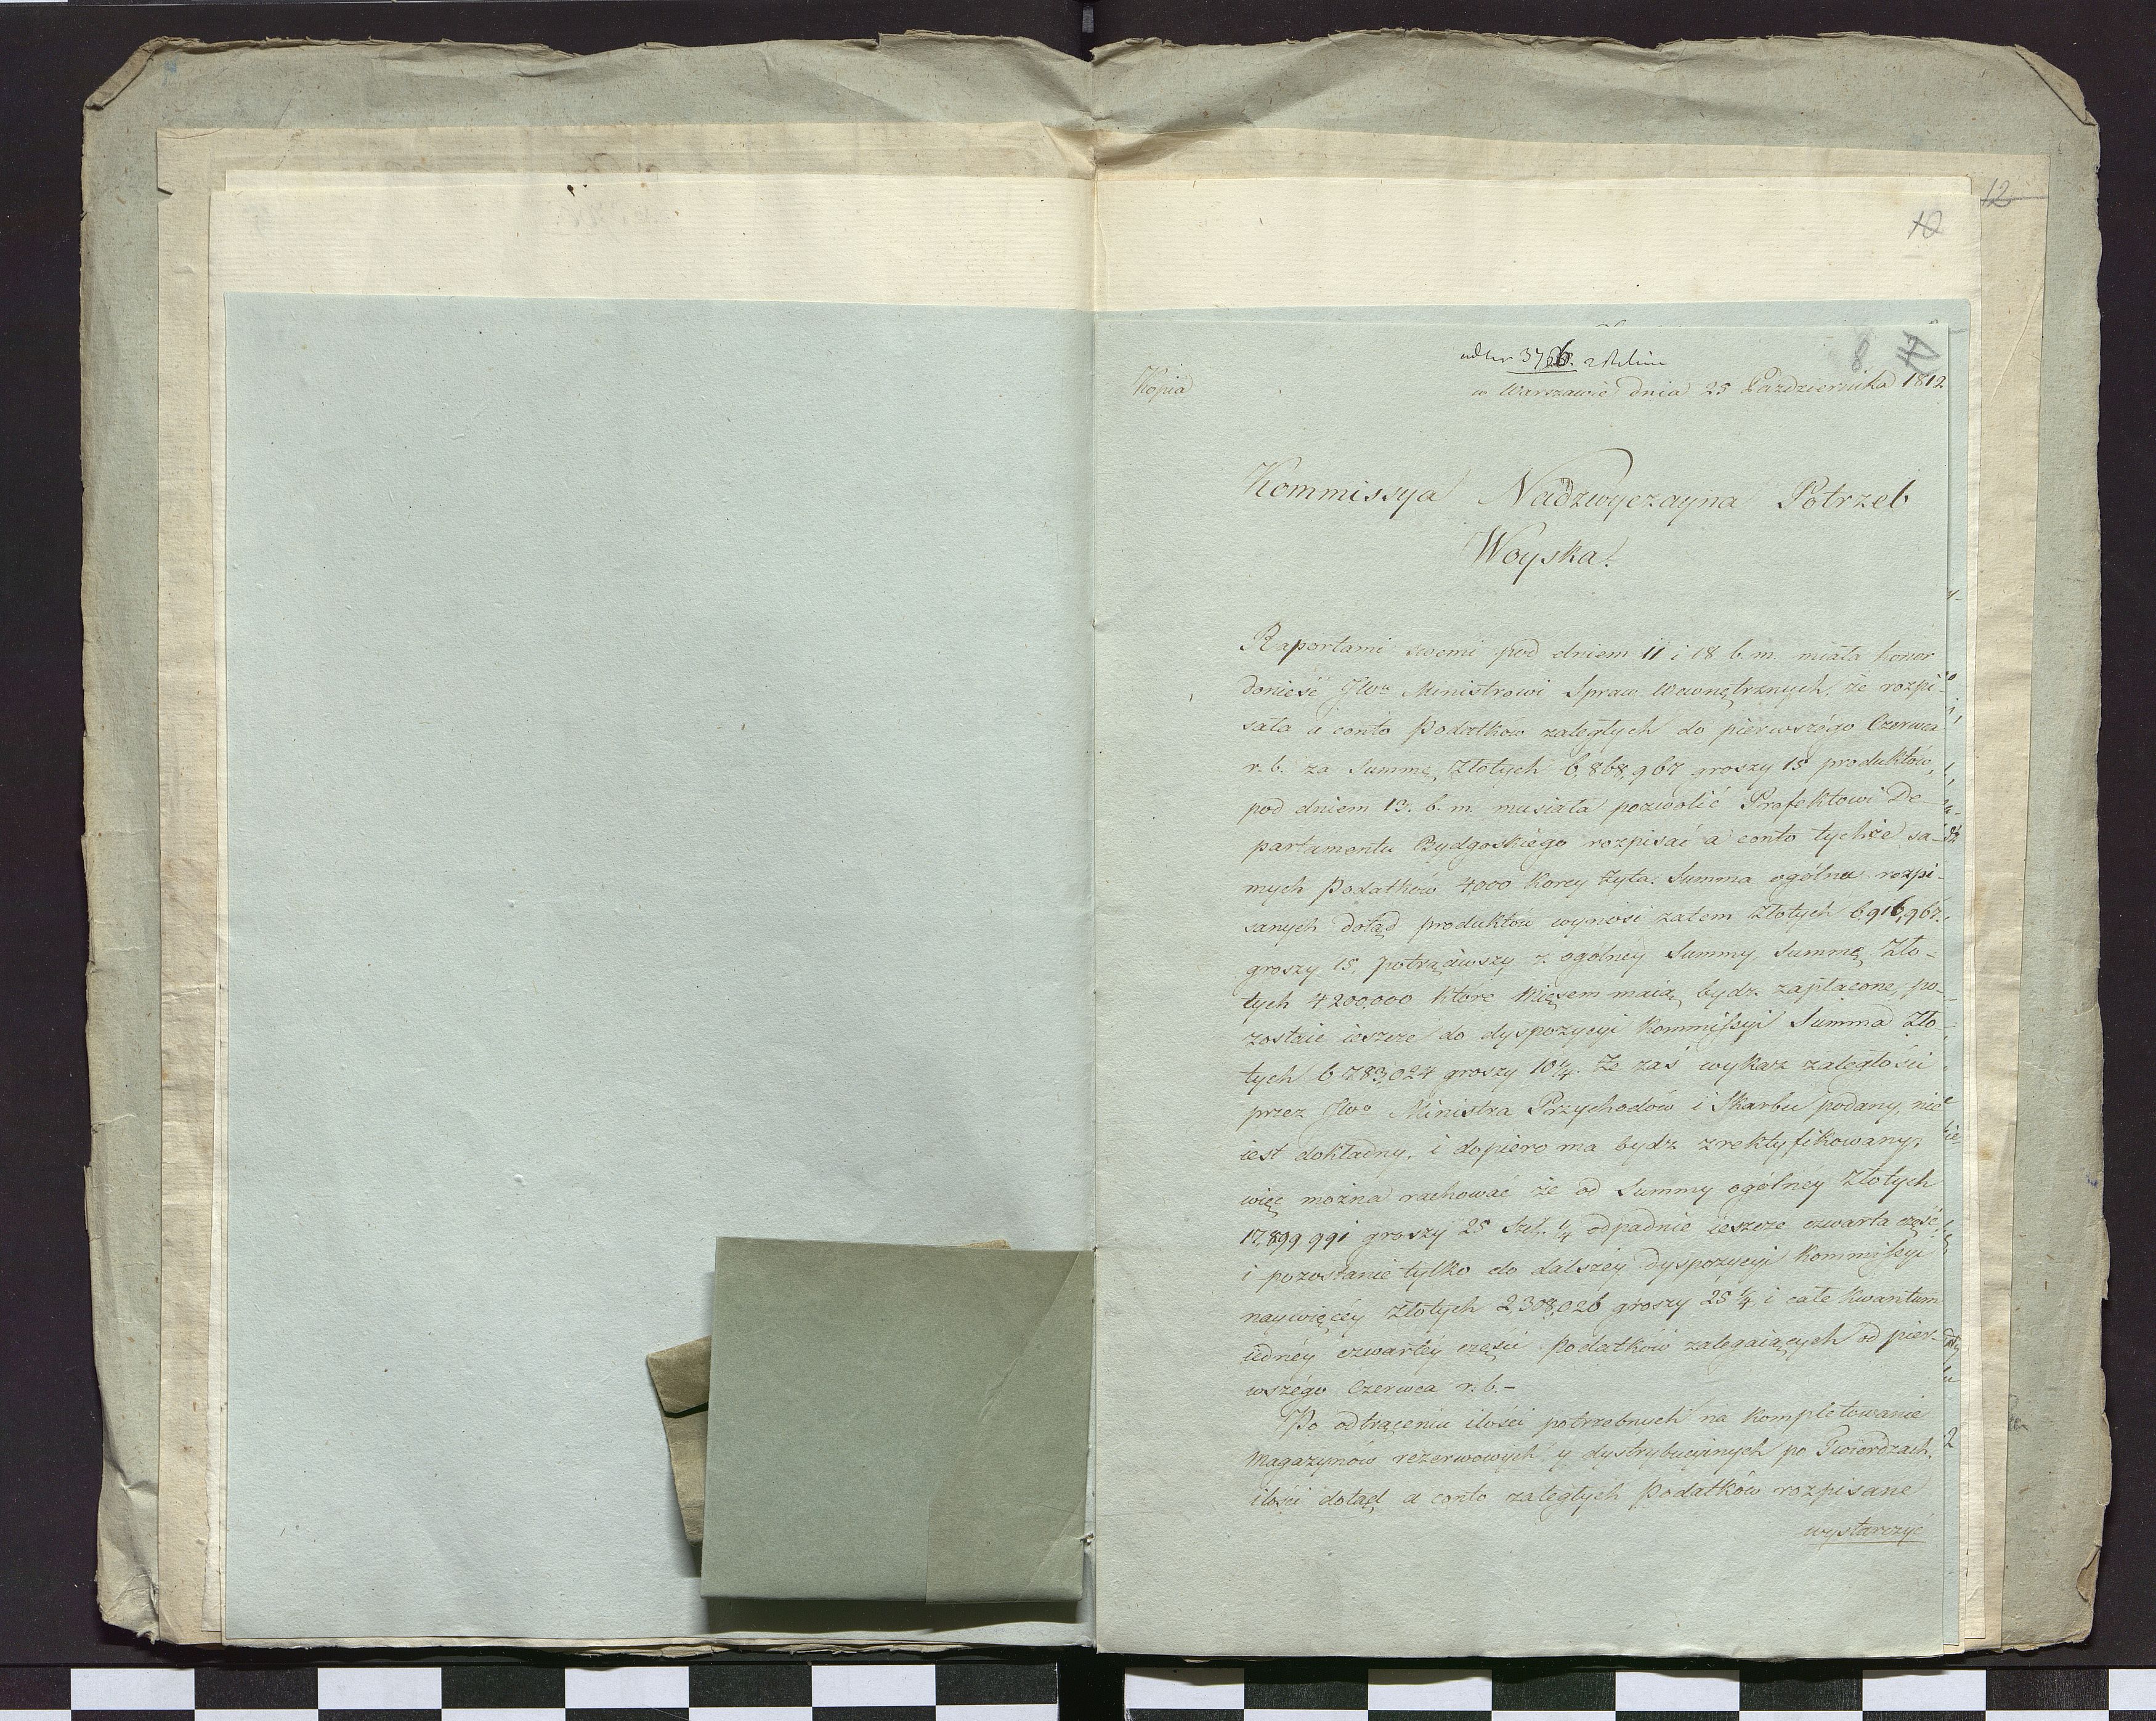 12
10
8 7
ad Nr 3766.
Kopia
w Warszawie dnia 25 Października 1812
Kommissya Nadzwyczayna Potrzeb
Woyska.
Raportami swemi pod dniem 11 i 18 b. m. miała honor
donieść JWu Ministrowi Spraw Wewnętrznych, że rozpi-
sała a conto Podatków zaległych do pierwszégo Czerwca
r. b. za Summę Złotych 6,868,967 groszy 15 produktów,
pod dniem 13. b. m. musiała pozwolić Prefektowi De-
partamentu Bydgoskiego rozpisać a conto tychże sa-
mych Podatków 4000 Korcy Żyta. Summa ogólna rozpi-
sanych dotąd produktów wynosi zatem Złotych 6,916,967.
groszy 15. potrąciwszy z ogólney Summy Summę Zło-
tych 4 200,000 które Mięsem maią bydz zapłacone, po-
zostaie ieszcze do dyspozycyi Kommissyi Summa Zło-
tych 6 783,024 groszy 10 1/4. Że zaś wykaz zaległości
przez JWo Ministra Przychodów i Skarbu podany, nie
iest dokładny, i dopiero ma bydz zrektyfikowany;
więc można rachować że od Summy ogólnéy Złotych
17,899 991 groszy 25 Szel. 1/4 odpadnie ieszcze czwarta część,
i pozostanie tylko do dalszéy dyspozycyi Kommissyi
naywięcéy Złotych 2 308,026 groszy 25 1/4, i całe Kwantum
iednéy czwartéy części Podatków zalegaiących od pier-
wszégo Czerwca r. b. -
Po odtrąceniu ilości potrzebnych na kompletowanie
Magazynów rezerwowych y dystrybucyinych po Twierdzach,
ilości dotąd a conto zaległych Podatków rozpisane
wystarczyć